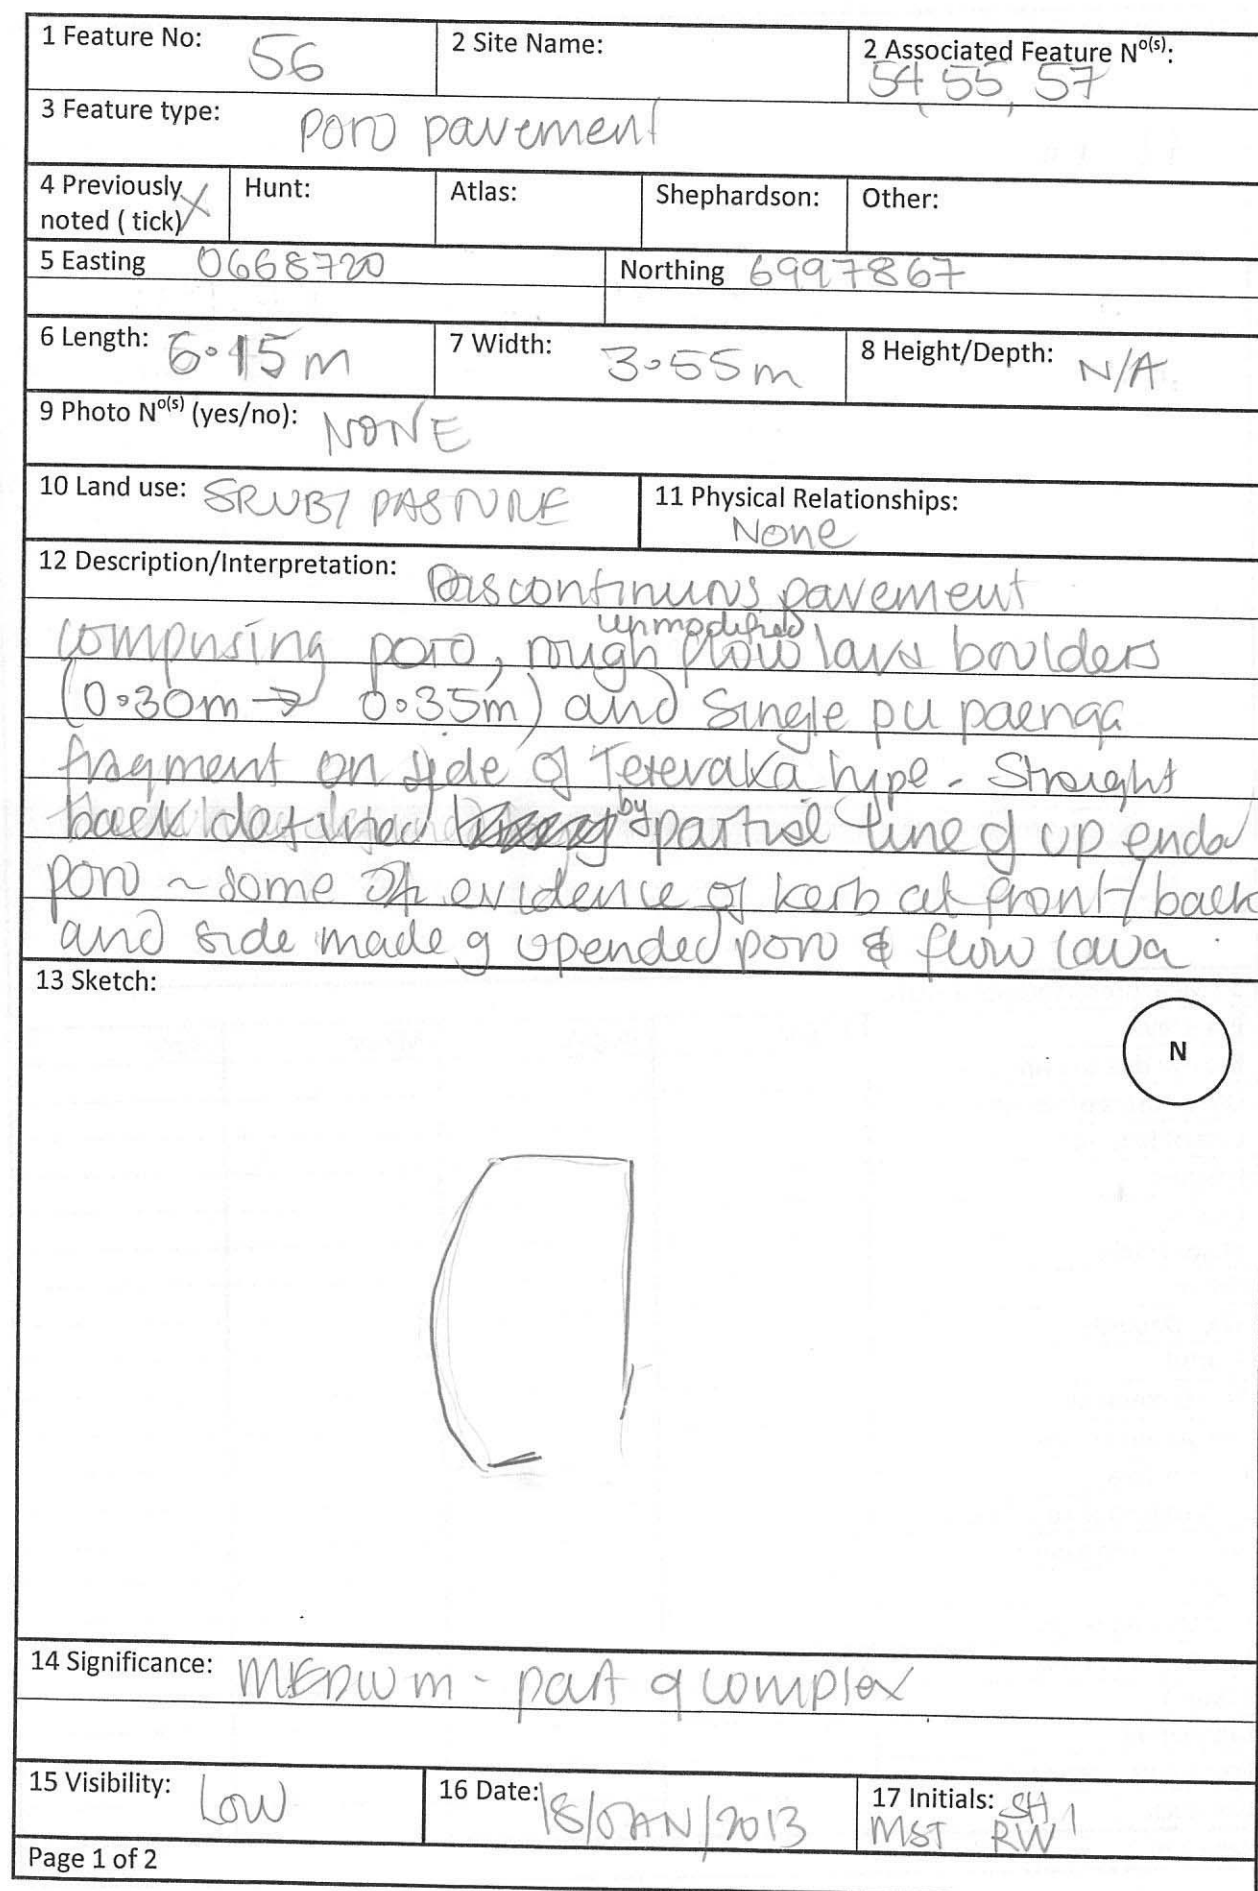 1 Feature No: 56
2 Site Name:
2 Associated Feature Nº(s): 54, 55, 57
3 Feature type: Poro pavement
4 Previously noted ( tick) X
Hunt:
Atlas:
Shephardson:
Other:
5 Easting 0668720
Northing 6997867
6 Length: 6.15m
7 Width: 3.55m
8 Height/Depth: N/A
9 Photo Nº(s) (yes/no): NONE
10 Land use: SRUB/ PASTURE
11 Physical Relationships: None
12 Description/Interpretation: Discontinuos pavement
comprising poro, rough unmodified flow lava boulders
(0.30m → 0.35m) and single pu paenga
fragment on side of Terevaka type - Straight
back defined by partial line of up ended
poro ~ some evidence of kerb at front/back
and side made of upended poro & flow lava.
13 Sketch:
N
14 Significance: MEDIUM - part of complex
15 Visibility: Low
16 Date: 18/JAN/2013
17 Initials: SH,
MST RW
Page 1 of 2